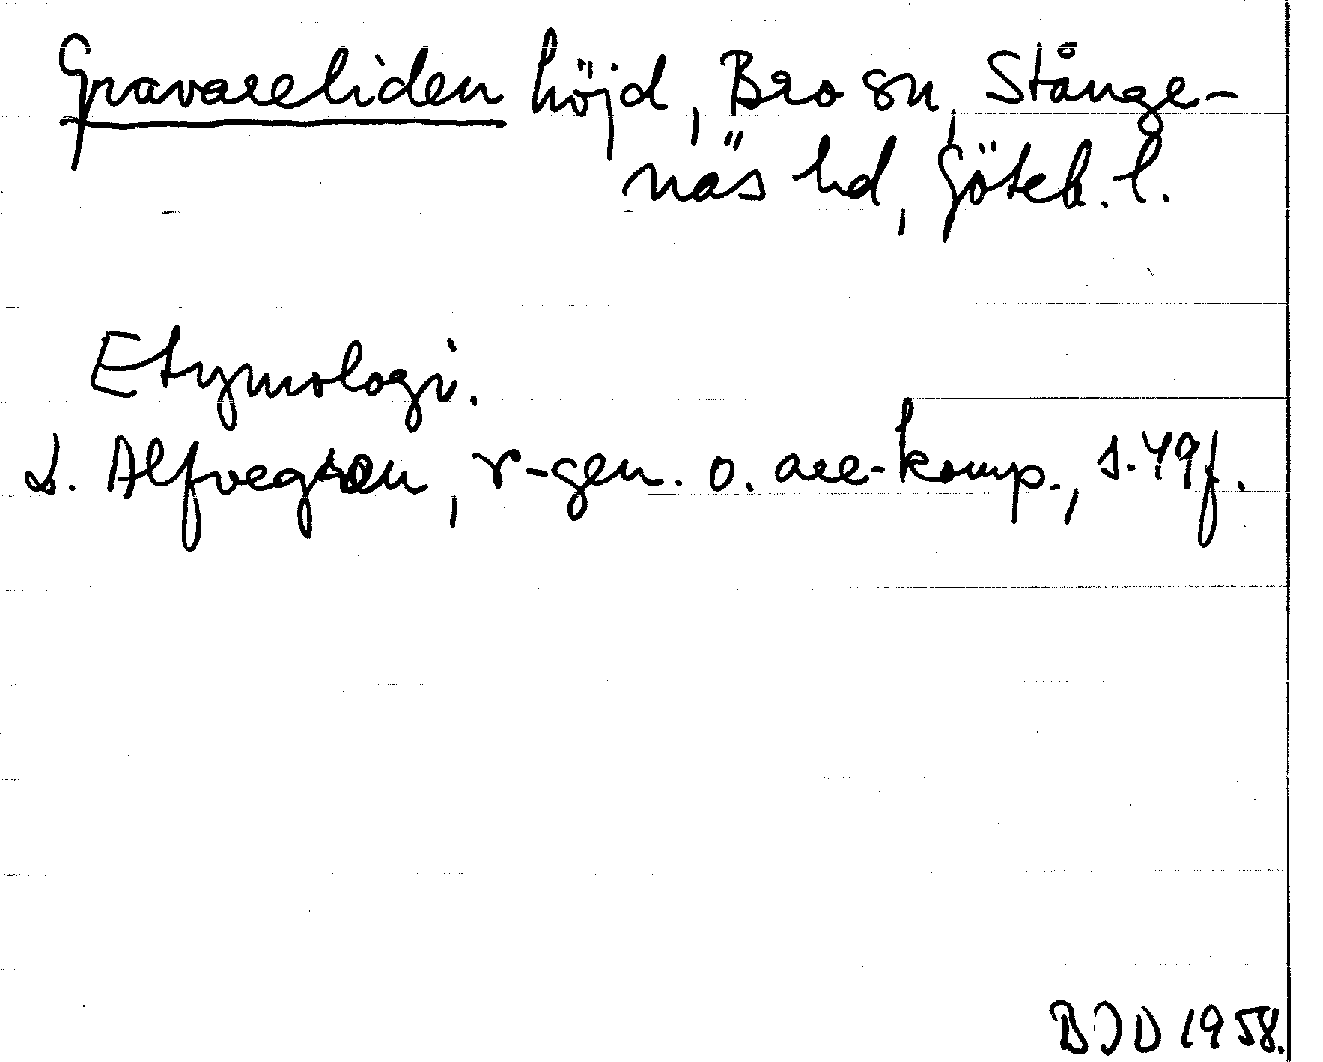 Gravareliden höjd, Bro sn, Stånge-
näs hd, Göteb. l.
Etymologi.
L. Alfvegren, r-gen. o. are-komp., s. 49f.
BJD 1958.